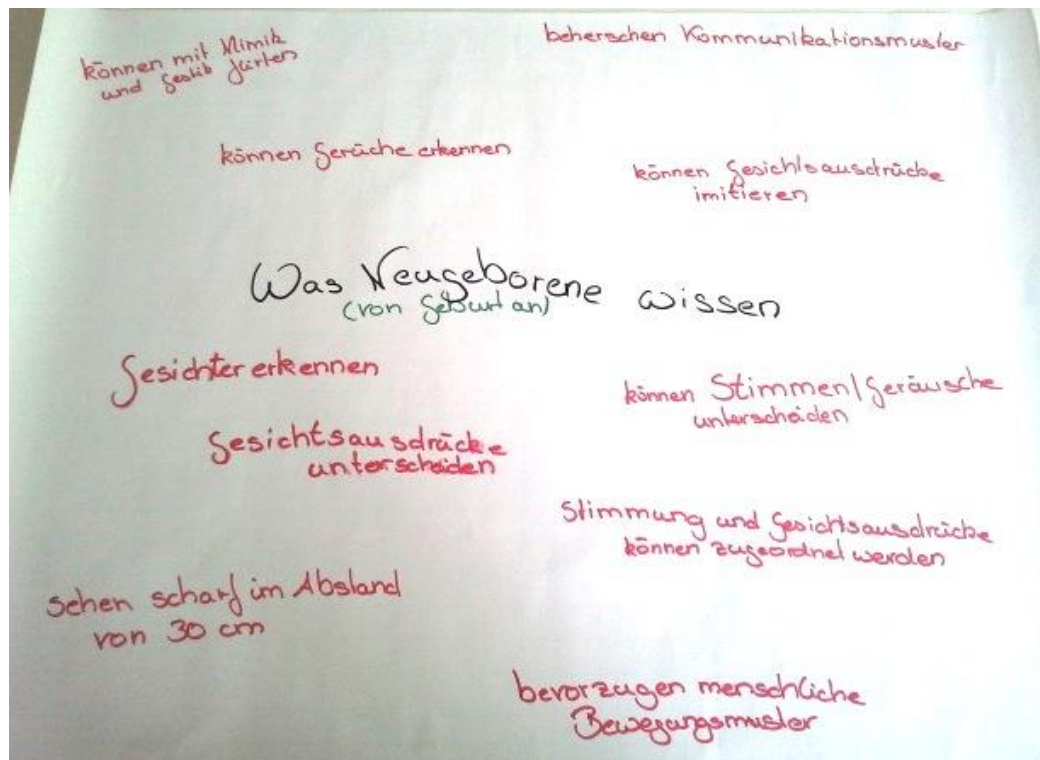 können mit Mimik
und Gestik flirten
beherschen Kommunikationsmuster
können Gerüche erkennen
können Gesichtsausdrücke
imitieren
Was Neugeborene wissen
(von Geburt an)
Gesichter erkennen
können Stimmen/Geräusche
unterscheiden
Gesichtsausdrücke
unterscheiden
Stimmung und Gesichtsausdrücke
können zugeordnet werden
sehen scharf im Abstand
von 30 cm
bevorzugen menschliche
Bewegungsmuster